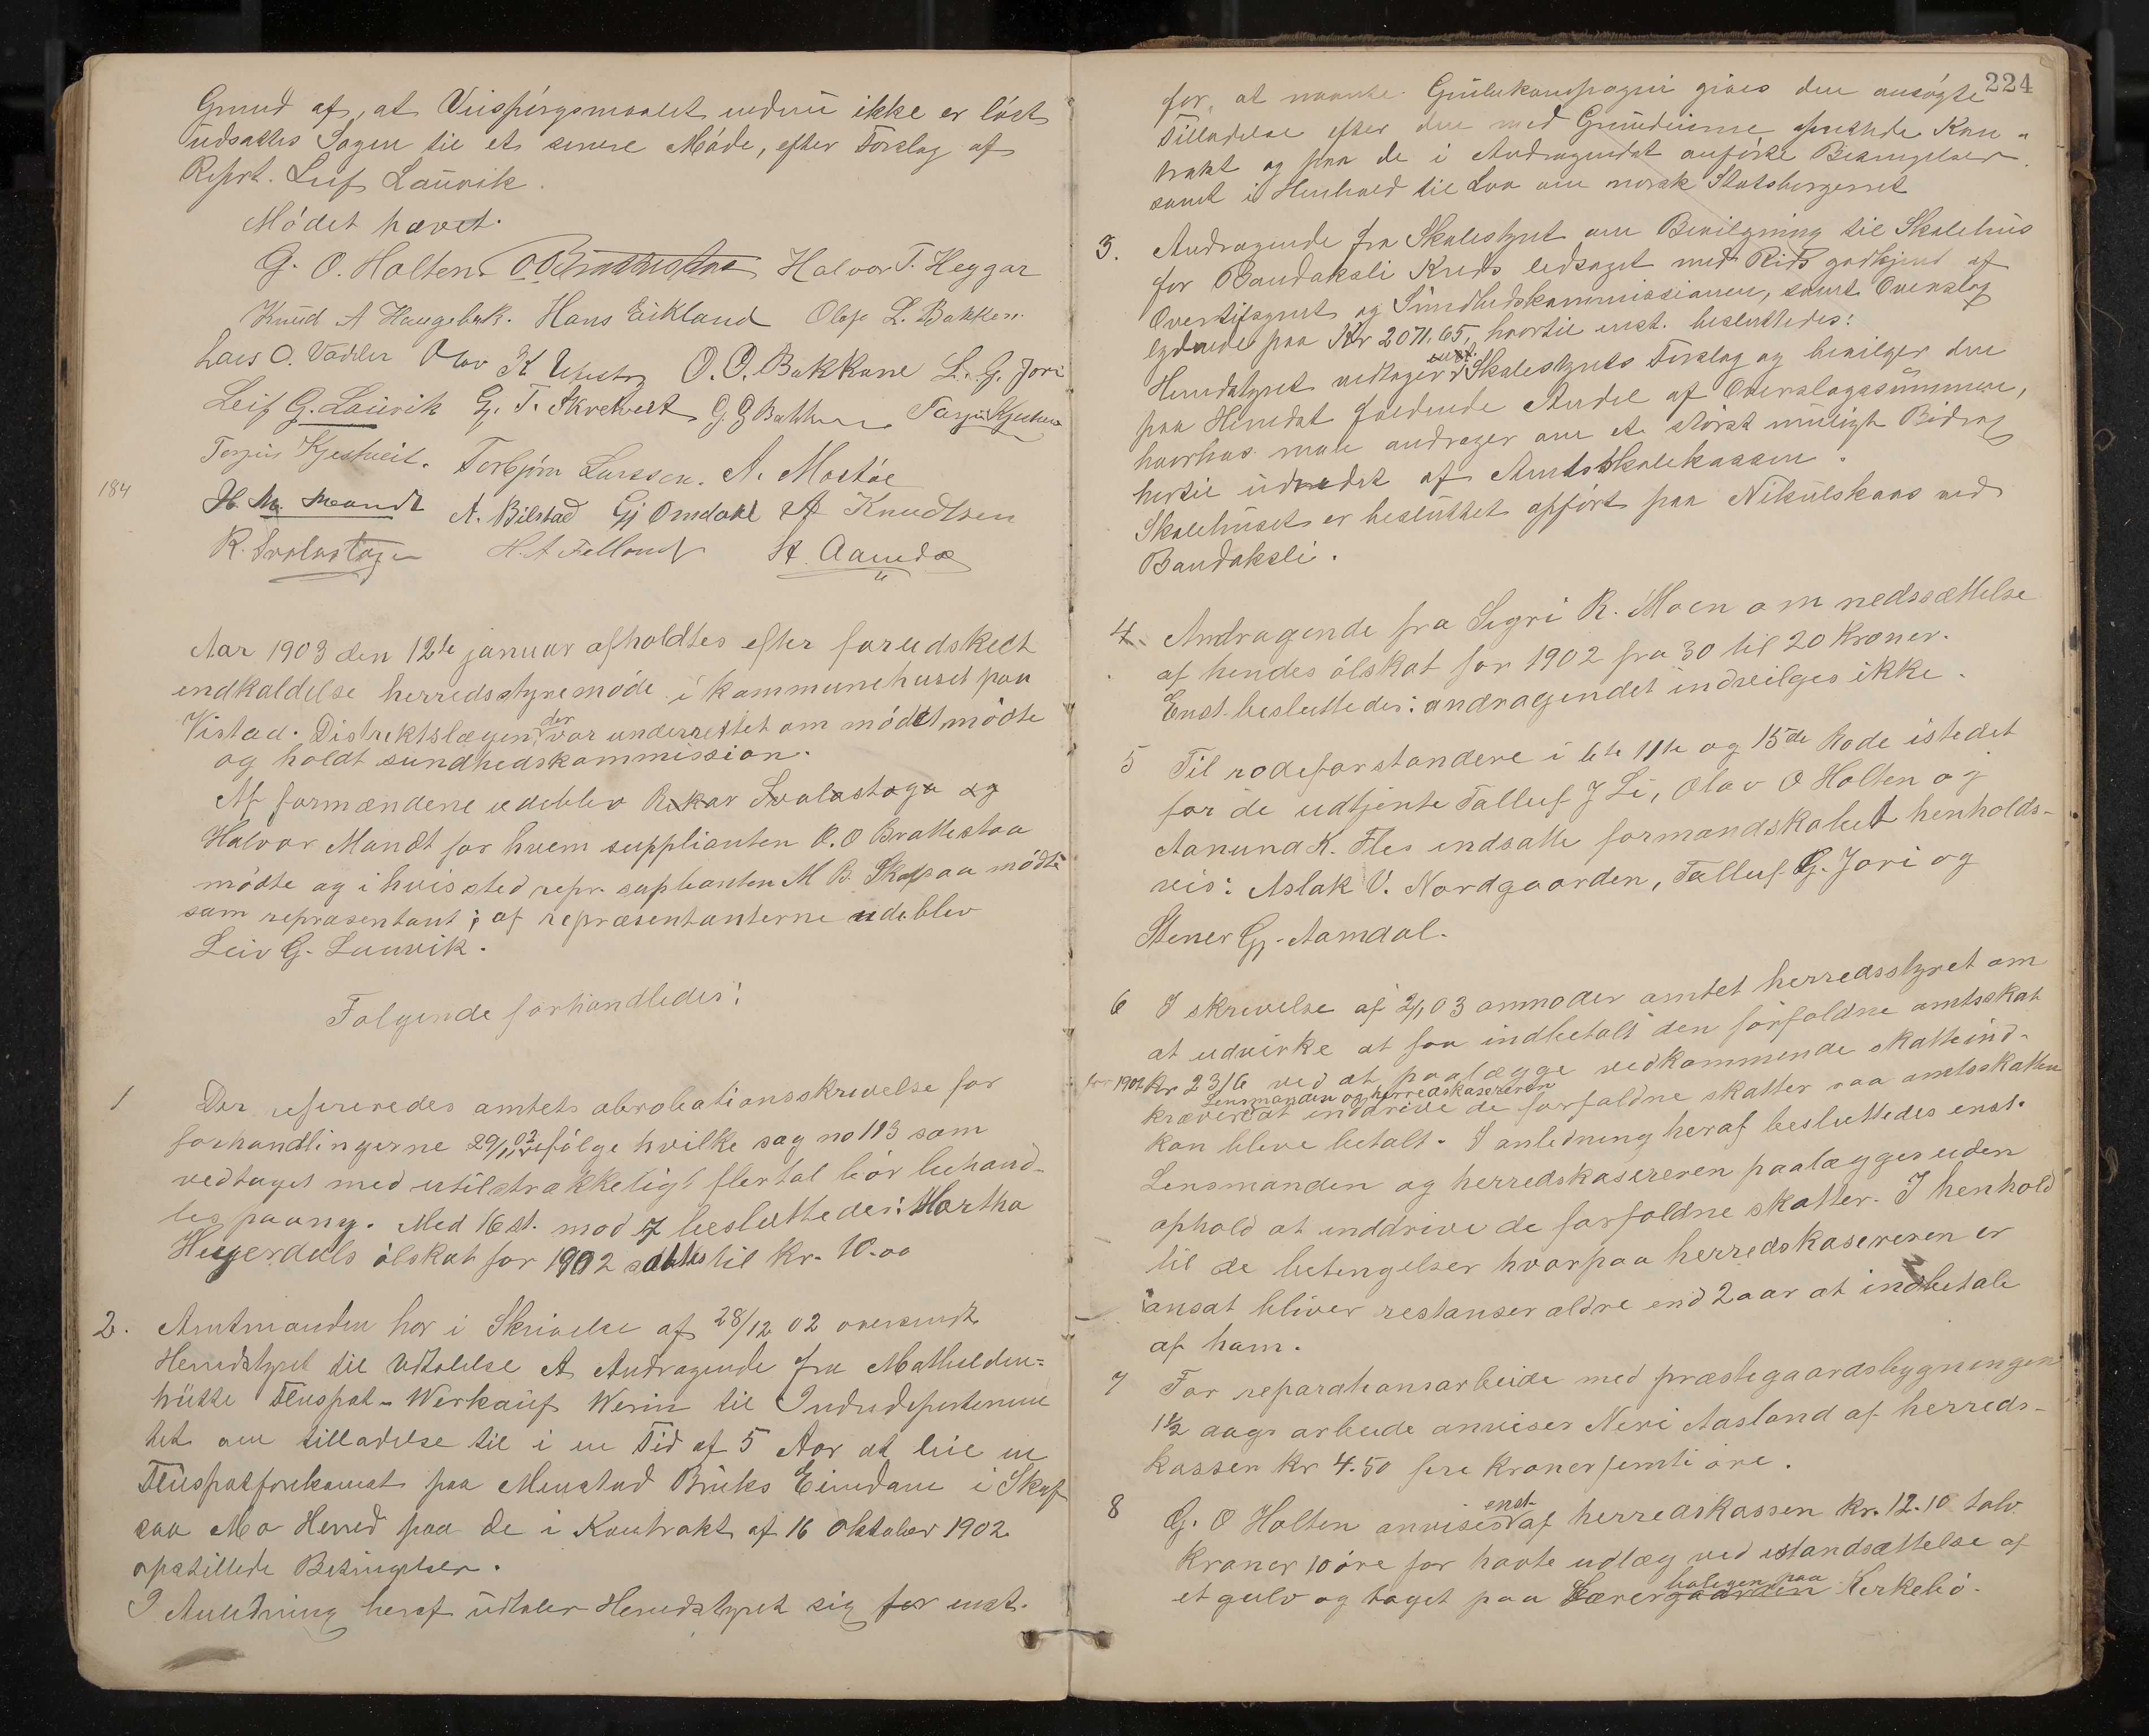 Grund af, at Veispörgsmaalet endnu ikke er löst
udsattes Sagen til et senere Möde, efter Forslag af
Reprt. Leif Lauvik.
Mödet hævet.
G. O. Holten. O O Brattestaa Halvor T. Heggar
Knud A Haugebak. Hans Eikland Olaf L. Bakken.
Lars O. Vadder Olav K O. O. Bakkane L. G. Jori
Leif G. Lauvik Gj. T. Skredvest G. G Bakken Tarjei
Torjus Kjeshveit. Torbjörn Larssen. A. Mostöe
184
H. M. Mandt A. Bilstad Gj Omdahl A Knudtsen
R. Svalastoga H. A Felland St. Aamdal
Aar 1903 den 12te januar afholdtes efter forudskedt
indkaldelse herredsstyremöde i kommunehuset paa
Vistad. Distriktslægen, der var underrettet om mödet, mödte
og holdt sundhedskommission.
Af formændene udeblev Rikar Svalastoga og
Halvor Mandt for hvem supplianten O. O Brattestaa
mödte og i hvis sted repr. suplianten M B. Skafsaa mödte
som repræsentant; af repræsentanterne udeblev
Leiv G. Lauvik.
Følgende forhandledes:
1 Der refereredes amtets abrobationsskrivelse for
forhandlingerne 29/11 02 ifölge hvilke sag no 113 som
vedtaget med utilstrækkeligt flertal bör behand-
les paany. Med 16 st. mod 7 besluttedes: Martha
Heggerdals ölskat for 1902 sættes til Kr. 10.00
2. Amtmanden har i Skrivelse af 28/12 02 oversendt
Herredstyret til Udtalelse et Andragende fra Mathilden-
hütte Fluspat-Werkauf Werin til Indredepartemen
tet om tilladelse til i en Tid af 5 Aar at leie en
Fluspatforekomst paa Menstad Bruks Eiendom i Skaf
saa Mo Herred paa de i Kontrakt af 16 Oktober 1902
opstillede Betingelser.
I Anledning heraf udtaler Herredstyret sig for enst.
224
for, at nævnte Grubekompagni gives den ansögte
Tilladelse efter den med Grundeierne oprettede Kon-
trakt og paa de i Andragendet anförte Betingelser
samt i Henhold til Lov om norsk Statsborgerret
3. Andragende fra Skolestyret om Bevilgning til Skolehus
for Bandaksli Kreds ledsaget med Rids godkjend af
Overtilsynet og Sundhedskommissionen, samt Overslag
lydende paa Kr 2071.65, hvortil enst. besluttedes:
Herredstyret vedtager enst. Skolestyrets Forslag og bevilger den
paa Herredet faldende Andel af Overslagssummen,
hvorhos man andrager om et störst muligt Bidrag
hertil udredet af Amtsskolekassen.
Skolehuset er besluttet opfört paa Nikulskaas ved
Bandaksli.
4. Andragende fra Sigri R. Moen om nedsættelse
af hendes ölskat for 1902 fra 30 til 20 Kroner.
Enst. besluttedes: andragendet indvilges ikke.
5 Til rodeforstandere i 6te 11te og 15de Rode istedet
for de udtjente Talluf J Li, Olav O Holten og
Aanund K. Fles indsatte formandskabet henholds-
vis: Aslak V. Nordgaarden, Talluf G. Jori og
Stener Gj. Aamdal.
6 I skrivelse af 2/1 03 anmoder amtet herredsstyret om
at udvirke at faa indbetalt den forfaldne amtsskat
for 1902 Kr 2316 ved at paalægge vedkommende skatteind-
Lensmanden og herredskassereren
krævere at inddrive de forfaldne skatter saa amtsskatten
kan blive betalt. I anledning heraf besluttedes enst.
Lensmanden og herredskasereren paalægges uden
ophold at inddrive de forfaldne skatter. I henhold
til de betingelser hvorpaa herredskasereren er
ansat bliver restanser ældre end 2 aar at indbetale
af ham.
7 For reparationsarbeide med præstegaardsbygningen
1½ dags arbeide anvises Neri Aasland af herreds-
kassen Kr 4.50 fire kroner femti öre.
8 G. O Holten anvises enst. af herredskassen Kr. 12.10 tolv
kroner 10 öre for havte udlæg ved istandsættelse af
et gulv og taget paa Lærergaarden boligen paa Kirkebö.